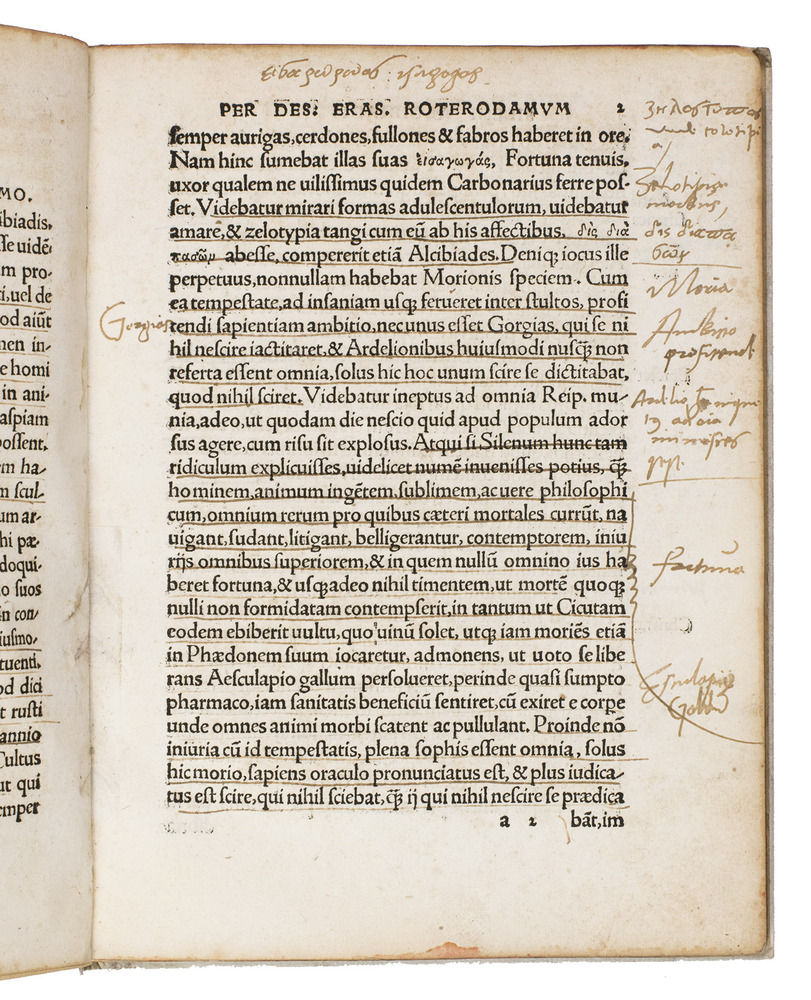 MO.
ibiadis,
m pro-
i,uel de
od aiūt
nen in-
e homi
in ani-
aspiam
possent.
em ha-
n scul-
um ar-
hi pæ-
doqui-
o suos
in con-
iusmo-
tuenti.
od dici
t rusti
annio
Cultus
ut qui
emper
PER DES: ERAS. ROTERODAMVM 2
semper aurigas,cerdones,fullones & fabros haberet in ore.
Nam hinc sumebat illas suas εἰσαγωγάς, Fortuna tenuis,
uxor qualem ne uilissimus quidem Carbonarius ferre pos-
set. Videbatur mirari formas adulescentulorum, uidebatur
amare,& zelotypia tangi cum eū ab his affectibus. δὶς διὰ
πασῶμ abesse, compererit etiā Alcibiades. Deniqꝫ iocus ille
perpetuus,nonnullam habebat Morionis speciem. Cum
ea tempestate,ad insaniam usqꝫ ferueret inter stultos, profi
Gorgias
tendi sapientiam ambitio,nec unus esset Gorgias, qui se ni
hil nescire iactitaret,& Ardelionibus huiusmodi nusqꝫ̄ non
referta essent omnia,solus hic hoc unum scire se dictitabat,
quod nihil sciret. Videbatur ineptus ad omnia Reip. mu-
nia,adeo,ut quodam die nescio quid apud populum ador
sus agere,cum risu sit explosus. Atqui si Silenum hunc tam
ridiculum explicuisses,uidelicet numē inuenisses potius, qꝫ̄
hominem,animum ingētem,sublimem,ac uere philosophi
cum,omnium rerum pro quibus cæteri mortales currūt, na
uigant,sudant,litigant, belligerantur, contemptorem, iniu
rijs omnibus superiorem,& in quem nullū omnino ius ha
beret fortuna,& usqꝫadeo nihil timentem,ut mortē quoqꝫ
nulli non formidatam contempserit,in tantum ut Cicutam
eodem ebiberit uultu,quo uinū solet, utqꝫ iam moriēs etiā
in Phædonem suum iocaretur, admonens, ut uoto se libe
rans Aesculapio gallum persolueret,perinde quasi sumpto
pharmaco,iam sanitatis beneficiū sentiret,cū exiret e corpe
unde omnes animi morbi scatent ac pullulant. Proinde nō
iniuria cū id tempestatis, plena sophis essent omnia, solus
hic morio,sapiens oraculo pronunciatus est, & plus iudica-
tus est scire,qui nihil sciebat,qꝫ̄ ij qui nihil nescire se prædica
a 2 bāt,im
Moria
fortuna